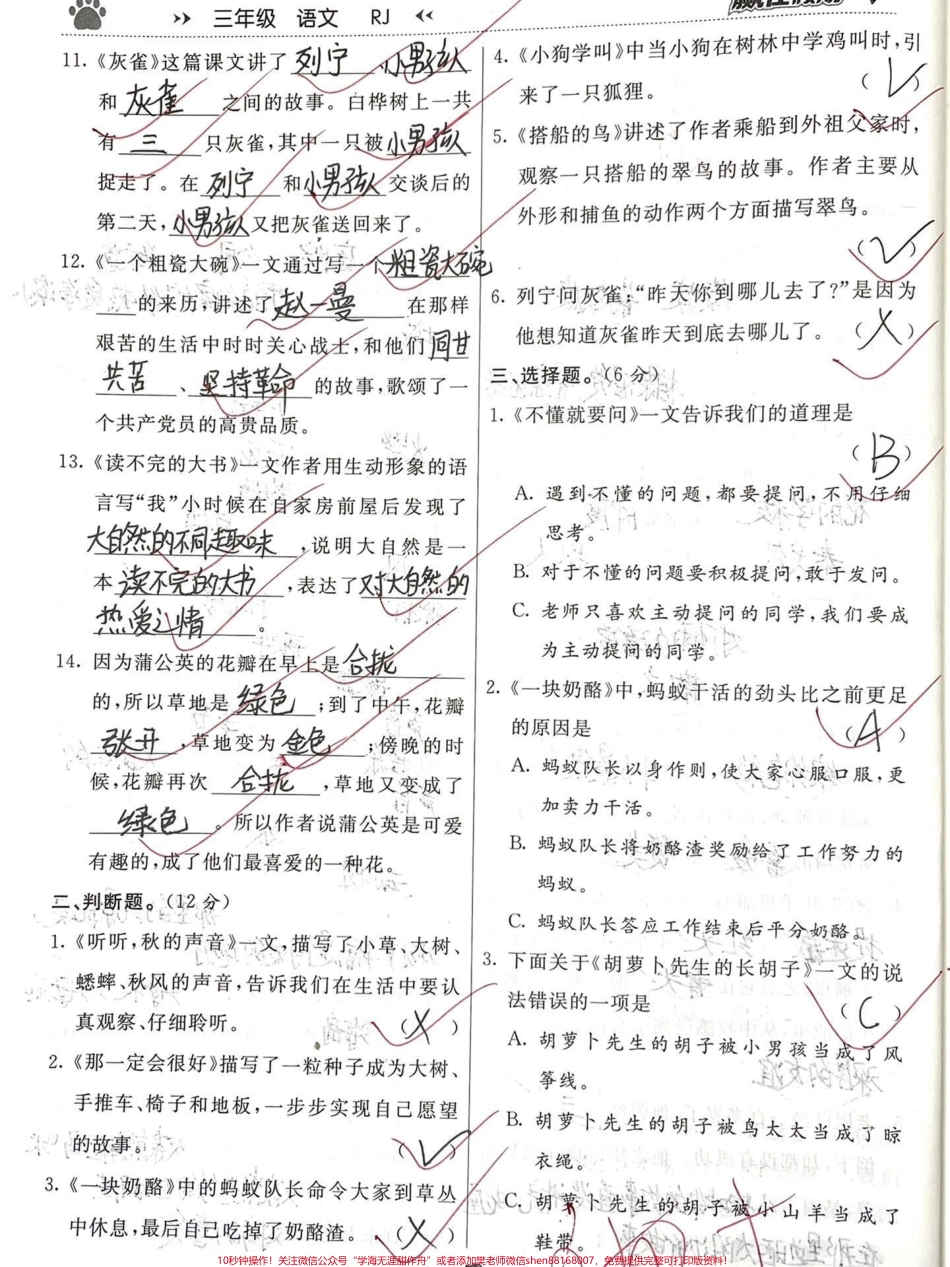 三年级 语文 RJ
11.《灰雀》这篇课文讲了 列宁 、小男孩
和 灰雀 之间的故事。白桦树上一共
有 三 只灰雀,其中一只被 小男孩
捉走了。在 列宁 和 小男孩 交谈后的
第二天, 小男孩 又把灰雀送回来了。
12.《一个粗瓷大碗》一文通过写一个 粗瓷大碗
的来历,讲述了 赵一曼 在那样
艰苦的生活中时时关心战士,和他们 同甘
共苦 、 坚持革命 的故事,歌颂了一
个共产党员的高贵品质。
13.《读不完的大书》一文作者用生动形象的语
言写“我”小时候在自家房前屋后发现了
大自然的不同趣味 ,说明大自然是一
本 读不完的大书 ,表达了 对大自然的
热爱之情 。
14. 因为蒲公英的花瓣在早上是 合拢
的,所以草地是 绿色 ;到了中午,花瓣
张开 ,草地变为 金色 ;傍晚的时
候,花瓣再次 合拢 ,草地又变成了
绿色 。所以作者说蒲公英是可爱
有趣的,成了他们最喜爱的一种花。
二、判断题。(12分)
1.《听听,秋的声音》一文,描写了小草、大树、
蟋蟀、秋风的声音,告诉我们在生活中要认
真观察、仔细聆听。 (X)
2.《那一定会很好》描写了一粒种子成为大树、
手推车、椅子和地板,一步步实现自己愿望
的故事。 (√)
3.《一块奶酪》中的蚂蚁队长命令大家到草丛
中休息,最后自己吃掉了奶酪渣。 (X)
4.《小狗学叫》中当小狗在树林中学鸡叫时,引
来了一只狐狸。 (√)
5.《搭船的鸟》讲述了作者乘船到外祖父家时,
观察一只搭船的翠鸟的故事。作者主要从
外形和捕鱼的动作两个方面描写翠鸟。
(√)
6. 列宁问灰雀:“昨天你到哪儿去了?”是因为
他想知道灰雀昨天到底去哪儿了。 (X)
三、选择题。(6分)
1.《不懂就要问》一文告诉我们的道理是
(B)
A. 遇到不懂的问题,都要提问,不用仔细
思考。
B. 对于不懂的问题要积极提问,敢于发问。
C. 老师只喜欢主动提问的同学,我们要成
为主动提问的同学。
2.《一块奶酪》中,蚂蚁干活的劲头比之前更足
的原因是 (A)
A. 蚂蚁队长以身作则,使大家心服口服,更
加卖力干活。
B. 蚂蚁队长将奶酪渣奖励给了工作努力的
蚂蚁。
C. 蚂蚁队长答应工作结束后平分奶酪。
3. 下面关于《胡萝卜先生的长胡子》一文的说
法错误的一项是 (C)
A. 胡萝卜先生的胡子被小男孩当成了风
筝线。
B. 胡萝卜先生的胡子被鸟太太当成了晾
衣绳。
C. 胡萝卜先生的胡子被小山羊当成了
鞋带。
10秒钟操作!关注微信公众号“学海无涯甜作舟”或者添加樊老师微信shen88168007,免费提供完整可打印版资料!